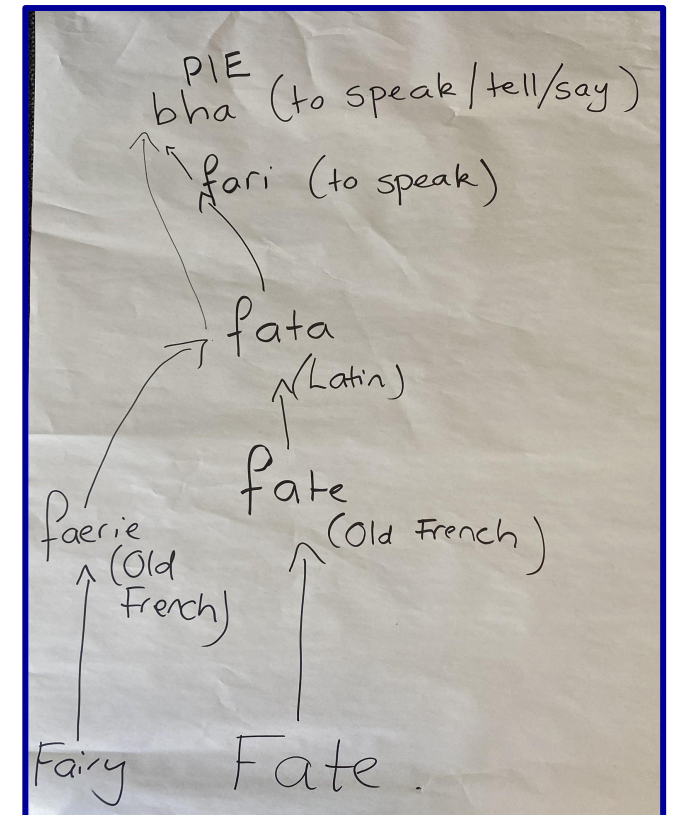 PIE
bha (to speak/tell/say)
fari (to speak)
fata
(Latin)
fate
(Old French)
faerie
(Old
French)
Fairy
Fate.